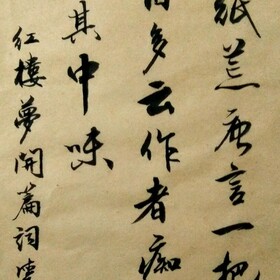 紙荒唐言一把
都云作者痴
其中味
紅樓夢開篇詞